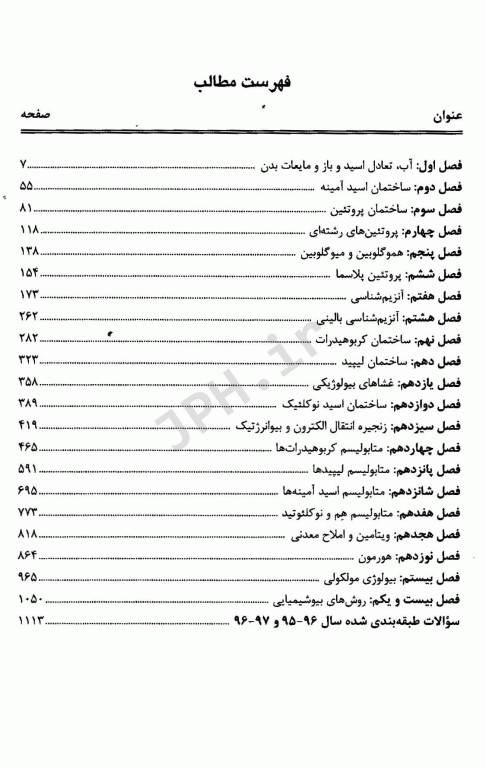 فهرست مطالب
عنوان صفحه
فصل اول: آب، تعادل اسید و باز و مایعات بدن ۷
فصل دوم: ساختمان اسید آمینه ۵۵
فصل سوم: ساختمان پروتئین ۸۱
فصل چهارم: پروتئین‌های رشته‌ای ۱۱۸
فصل پنجم: هموگلوبین و میوگلوبین ۱۳۸
فصل ششم: پروتئین پلاسما ۱۵۴
فصل هفتم: آنزیم‌شناسی ۱۷۳
فصل هشتم: آنزیم‌شناسی بالینی ۲۶۲
فصل نهم: ساختمان کربوهیدرات ۲۸۲
فصل دهم: ساختمان لیپید ۳۲۳
فصل یازدهم: غشاهای بیولوژیکی ۳۵۸
فصل دوازدهم: ساختمان اسید نوکلئیک ۳۸۹
فصل سیزدهم: زنجیره انتقال الکترون و بیوانرژتیک ۴۱۹
فصل چهاردهم: متابولیسم کربوهیدرات‌ها ۴۶۵
فصل پانزدهم: متابولیسم لیپیدها ۵۹۱
فصل شانزدهم: متابولیسم اسید آمینه‌ها ۶۹۵
فصل هفدهم: متابولیسم هِم و نوکلئوتید ۷۷۳
فصل هجدهم: ویتامین و املاح معدنی ۸۱۸
فصل نوزدهم: هورمون ۸۶۴
فصل بیستم: بیولوژی مولکولی ۹۶۵
فصل بیست و یکم: روش‌های بیوشیمیایی ۱۰۵۰
سؤالات طبقه‌بندی شده سال ۹۶-۹۵ و ۹۷-۹۶ ۱۱۱۳
JPH.ir